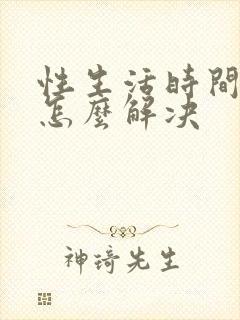 性生活時間
怎麼解决
神琦先生